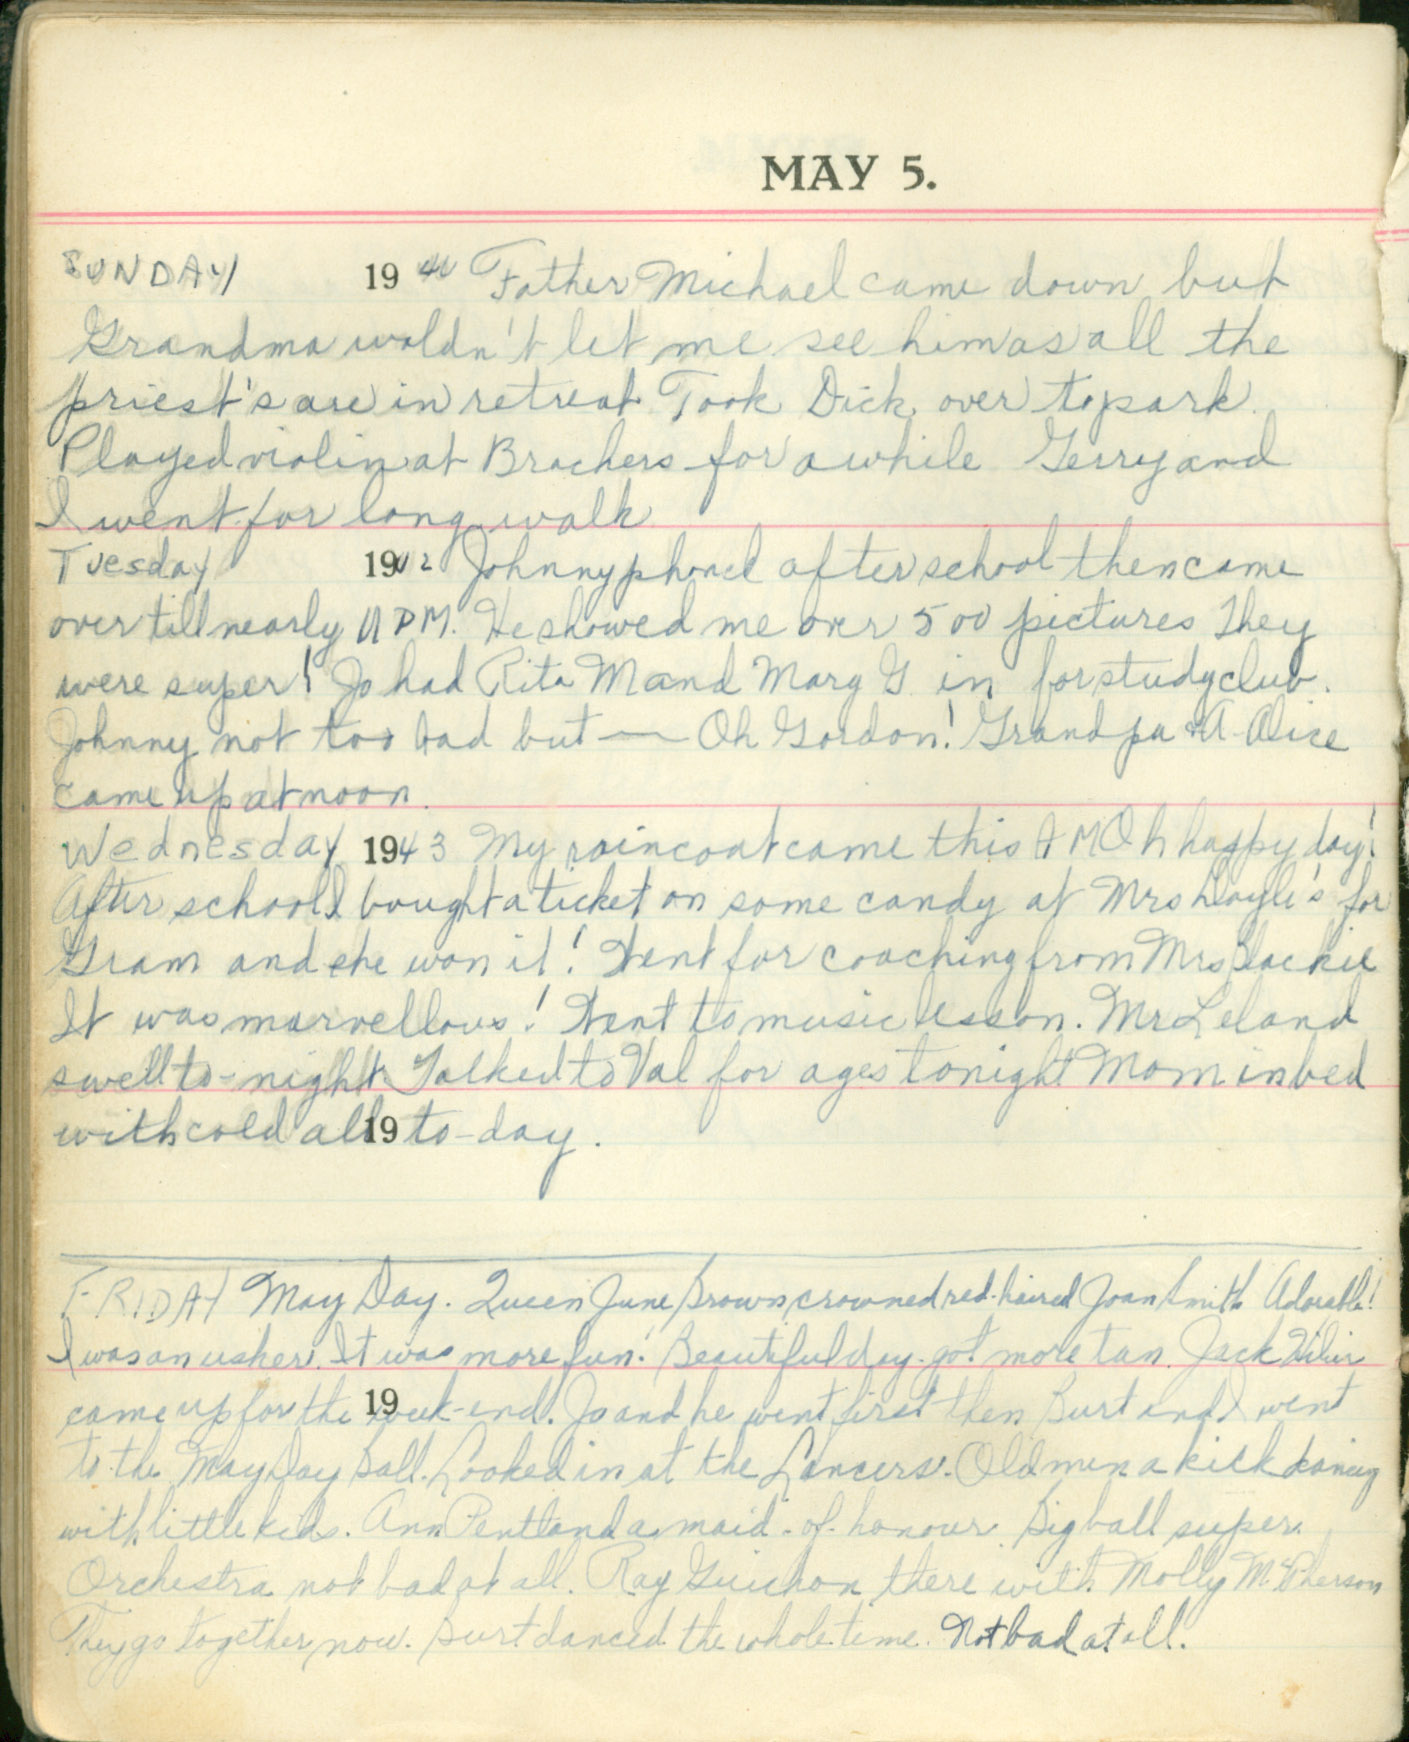 MAY 5.
SUNDAY 19 40 Father Michael came down but
Grandma woldn't let me see him as all the
priest's are in retreat Took Dick over to park.
Played violin at Brachers for awhile Gerry and
I went for long walk
Tuesday 1942 Johnny phoned after school then came
over till nearly 11 P M. He showed me over 500 pictures They
were super! Jo had Rita M and Marg G in for study club.
Johnny not too bad but — Oh Gordon! Grandpa & A. Alice
came up at noon.
Wednesday 1943 My raincoat came this A M Oh happy day!
After school I bought a ticket on some candy at Mrs Doyle's for
Gram and she won it! Went for coaching from Mrs Blackie
It was marvellous! Went to music lesson. Mr Leland
swell to-night Talked to Val for ages tonight Mom in bed
with cold all 19 to-day.
FRIDAY May Day. Queen June Brown crowned red-haired Joan Smith Adorable!
I was an usher. It was more fun! Beautiful day. got more tan. Jack
came up for the 19 week-end. Jo and he went first then Burt and I went
to the May Day Ball. Looked in at the Lancers. Old men a kick dancing
with little kids. Ann Pentland a maid-of-honour. Big ball super.
Orchestra not bad at all. Ray Guichon there with Molly McPherson
They go together now. Burt danced the whole time. Not bad at all.